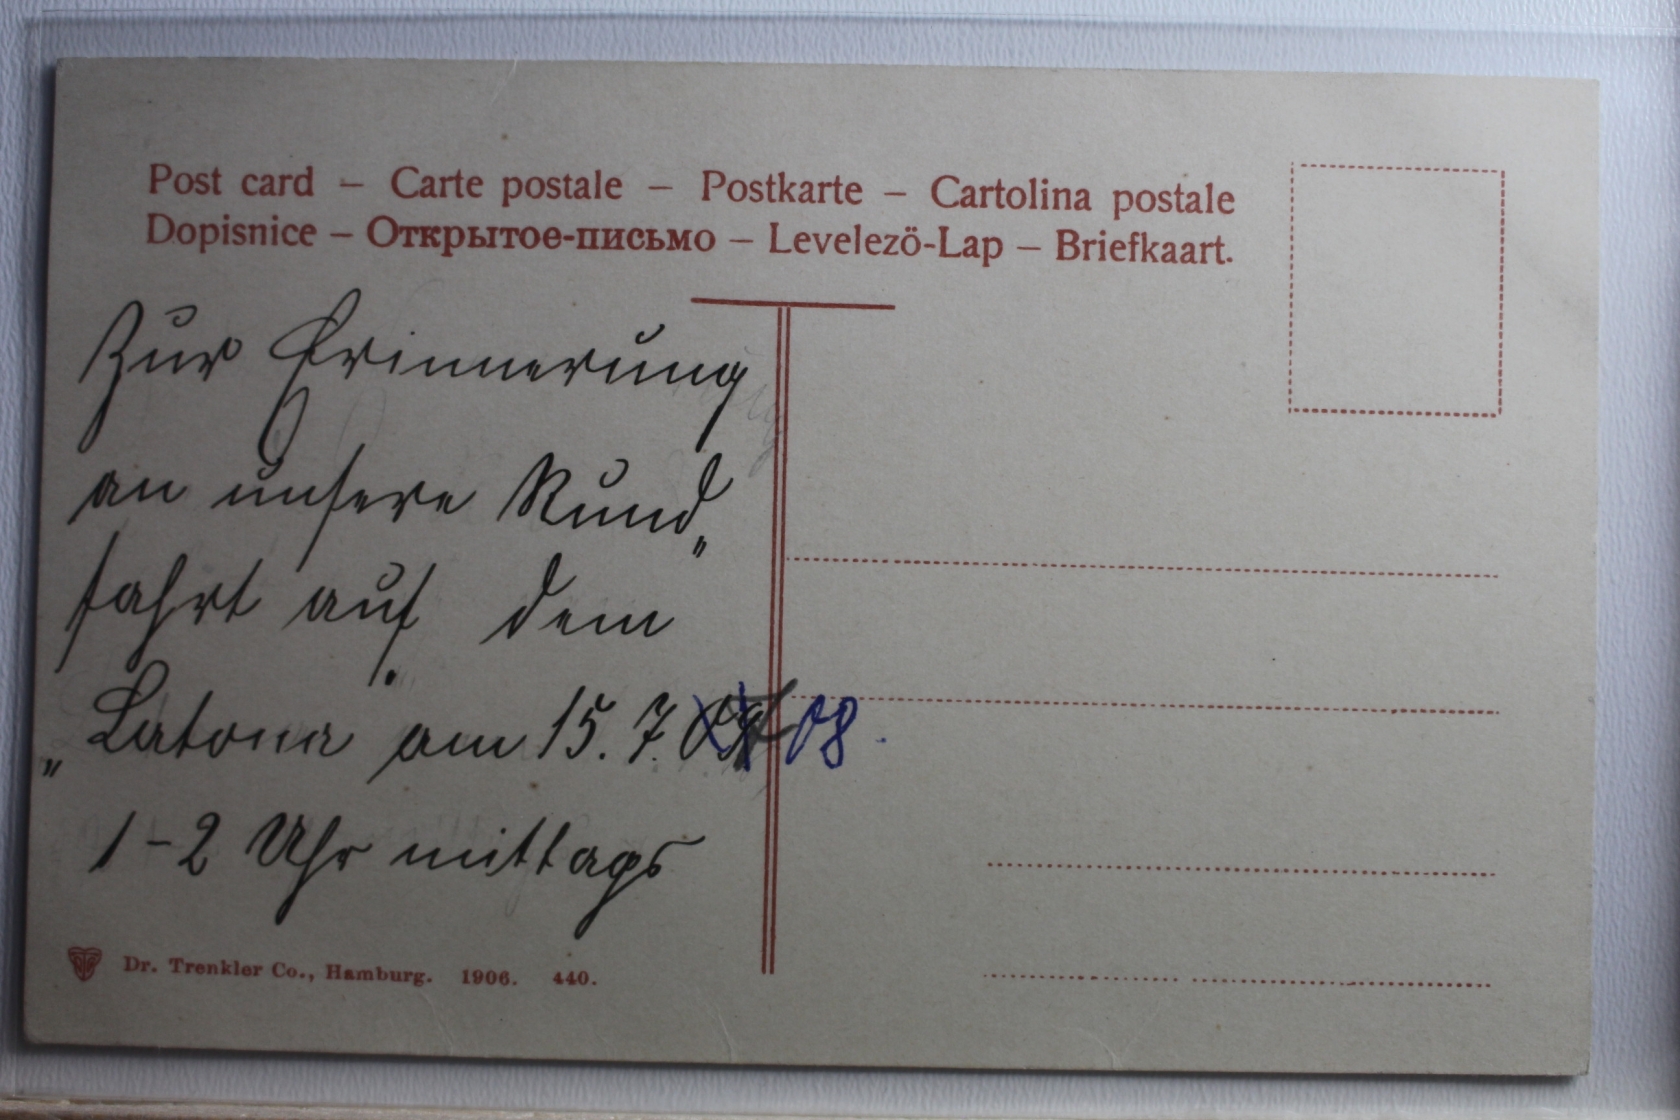 Post card – Carte postale – Postkarte – Cartolina postale
Dopisnice – Открытое-письмо – Levelező-Lap – Briefkaart.
Zur Erinnerung
an unsere Rund„
fahrt auf dem
„Latona am 15. 7. 08.
1–2 Uhr mittags
Dr. Trenkler Co., Hamburg. 1906. 440.